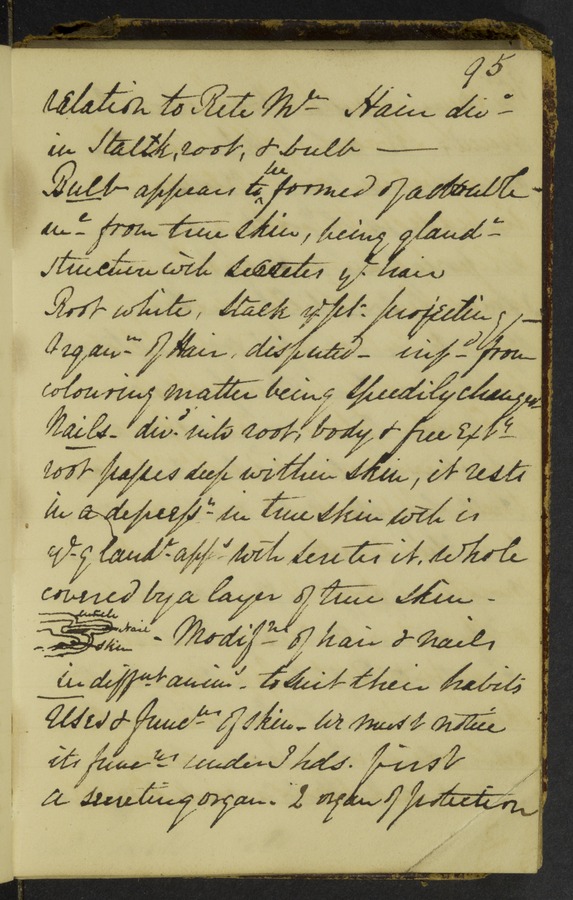 95
relation to Rete Mm Hair divd
in Stalk, root, & bulb —
Bulb appears to be formed of a double
from true skin, being glandr
structure wch secretes ye hair
Root white, Stalk ye pt. projecting
Organn of Hair, disputed - infd from
colouring matter being speedily changed
Nails - divd into root, body & free Exty
root passes deep within skin, it rests
in a depressn in true skin wch is
ye glandr appr wch secretes it, whole
covered by a layer of true skin -
cuticle
Nail
skin
- Modifns of hair & nails
in diffent anims to suit their habits
Uses & funcns of skin - We must notice
its funcns under 3 hds. first
a secreting organ. 2 organ of protection